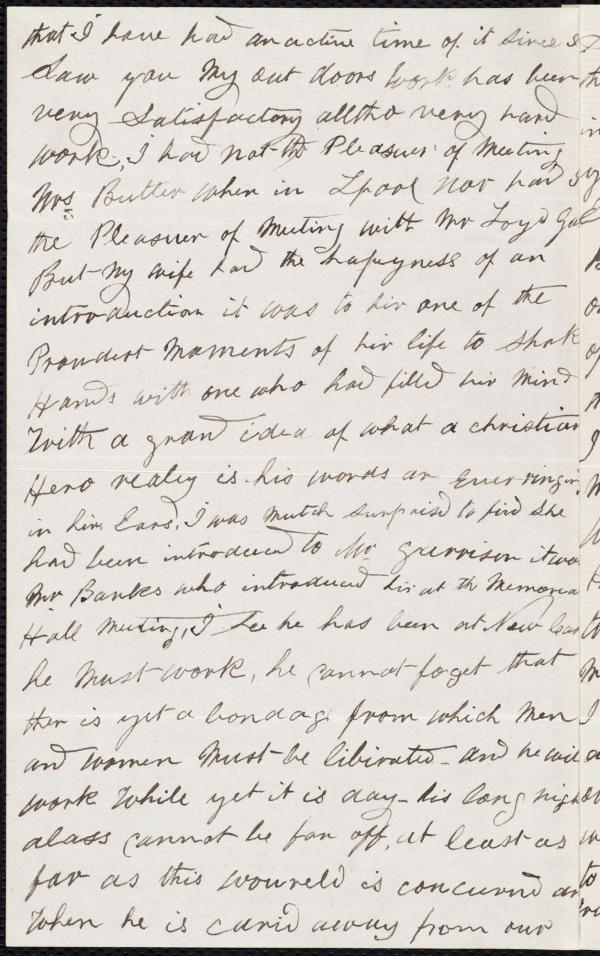 that I have had an active time of it since I
Saw you My out doors work has been
very Satisfactory alltho very hard
work, I had not the Pleasuer of Meeting
Mrs Butler when in Lpool nor had
the Pleasuer of Meeting with Mr Loyd Ga
But My wife had the hapeyness of an
introduction it was to hir one of the
Proudest Moments of hir life to Shak
Hands with one who had filled hir Mind
With a grand idea of what a christian
Hero realey is. his words ar Ever ringin
in hir Ears. I was mutch surprised to find she
had been introduced to Mr Garrison it wa
Mr Banks who introduced hir at th Memoria
Hall Meeting, I See he has been at New Cas
he Must work, he cannot foget that
ther is yet a bondage from which Men
and women Must be libirated - and he will
work While yet it is day - his long night
alass cannot be far off, at least as
far as this woureld is concurnd an
When he is carid away from our